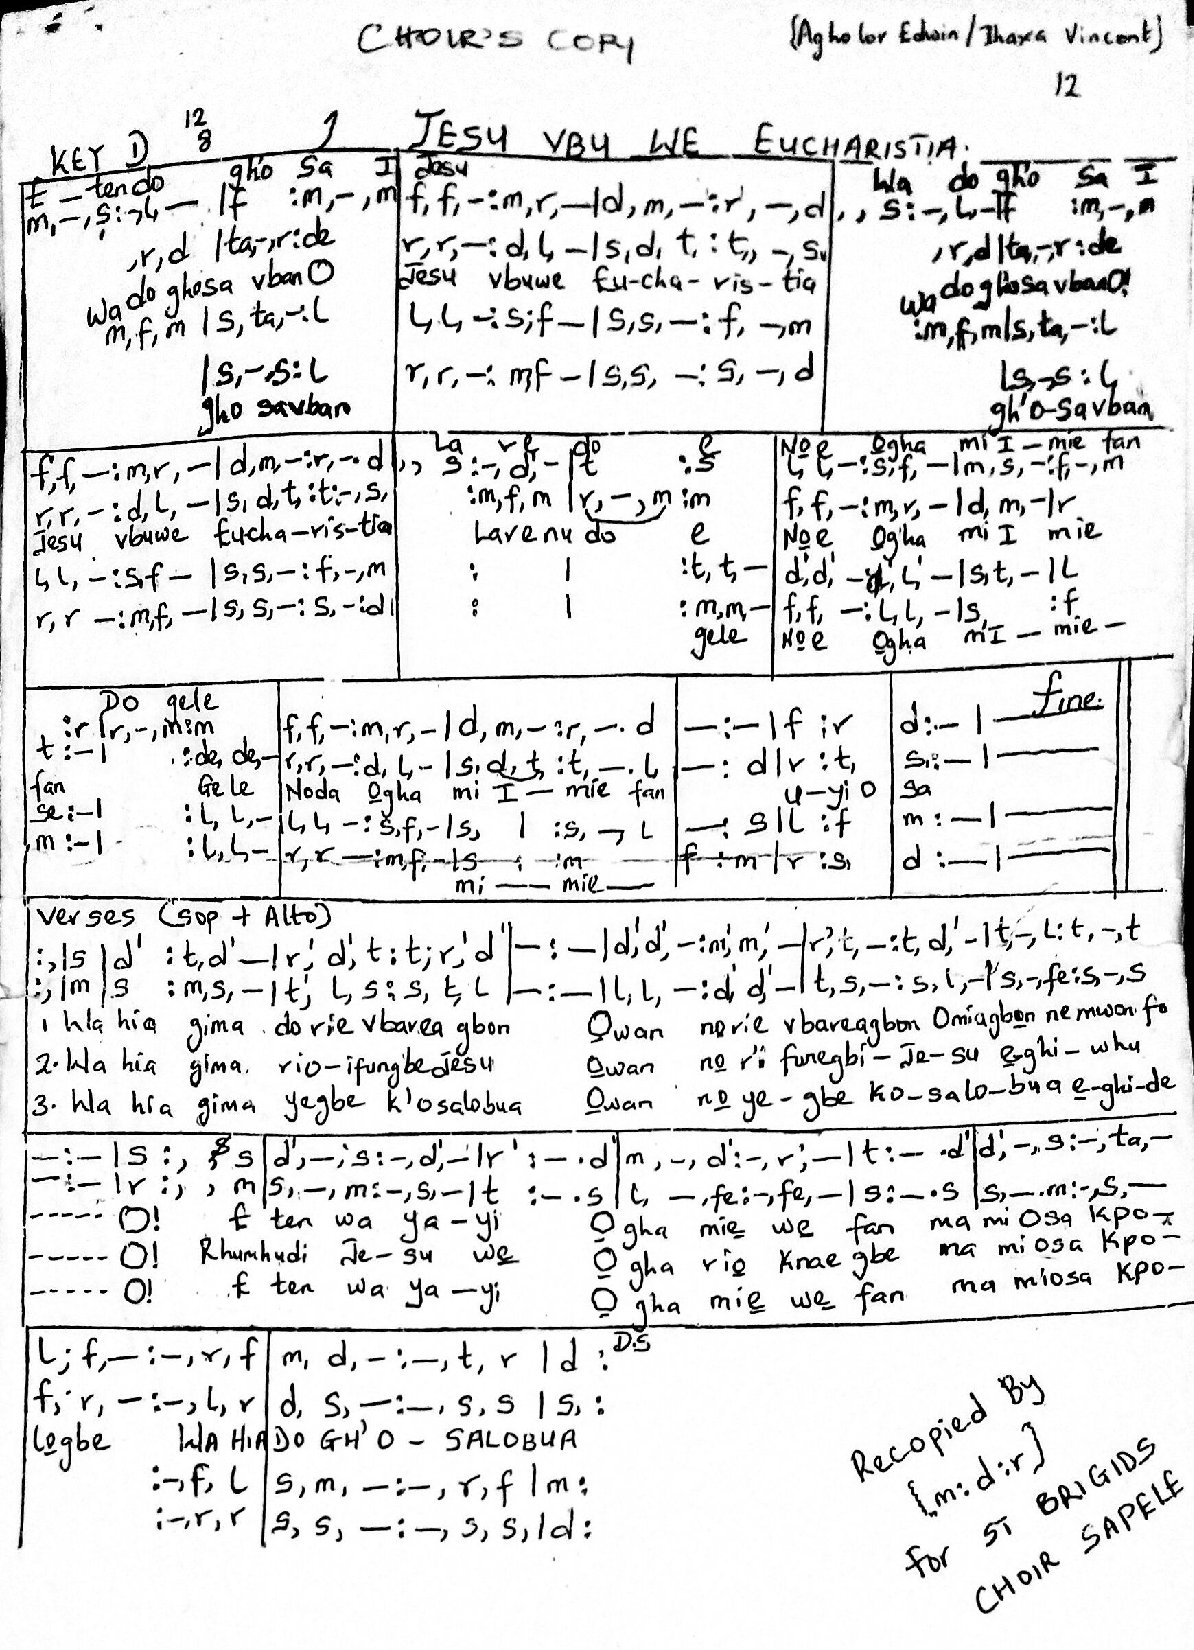 CHOIR'S COPY
(Agholor Edwin/Ihaxa Vincent)
12
KEY D 12 8 1 JESU VBU WE EUCHARISTIA.
E – tendo gho Sa I Jesu Wa do gh'o Sa I
m,-,s:-,L- |f :m,-,m f,f,-:m,r,-|d,m,-:r',-,d , , s:-,L,-|f :m,-,m
,r,d |ta,-,r:de r,r,-:d,L,-|s,d,t,:t,,-,s, ,r,d|ta,-,r:de
Wa do ghosa vban O Jesu vbuwe Eu-cha-ris-tia Wa do ghosa vbanO!
m,f,m |s,ta,-:L L,L,-:s;f-|s,s,-:f,-,m :m,f,m|s,ta,-:L
|s,-,s:L r,r,-:m,f-|s,s,-:s,-,d |s,-,s:L,
gho savban gh'O-Savban
f,f,-:m,r,-|d,m,-:r,-.d , , s:-,d,-|t :s L,L,-:s,f,-|m,s,-:f,-,m
La re do e Noe Ogha mi I-mie fan
r,r,-:d,L,-|s,d,t,:t:-,s, :m,f,m |r,-,m:m f,f,-:m,r,-|d,m,-|r
Jesu vbuwe Eucha-ris-tia Larenu do e Noe Ogha mi I mie
L,L,-:s,f- |s,s,-:f,-,m : | :t,t,- d',d',-:L',L'-|s,t,-|L
r,r -:m,f,-|s,s,-:s,-:d : | :m,m,- f,f,-:L,L,-|s, :f
gele Noe Ogha mI-mie-
Do gele fine.
:r |r,-,m:m f,f,-:m,r,-|d,m,-:r,-.d -:-|f :r d:-|
t:-| :de,de,- r,r,-:d,L,-|s,d,t,:t,-.L -: d|r :t, s,:-|
fan Gele Noda Ogha mi I-mie fan u-yi O sa
se:-| :L,L,- L,L,-:s,f,-|s, | :s,-,L -: s|L :f m:-|
m:-| :L,L,- r,r-:m,f,-|s : :m f :m |r :s, d:-|
mi — mie —
Verses (Sop + Alto)
:,|s |d' :t,d'-|r',d',t:t;r,'d'|-:-|d',d',-:m',m',-|r',t,-:t,d,'-|t,-,L:t,-,t
:,|m |s :m,s,-|t; L,s:s,t,L |-:-|L,L,-:d,'d',-|t,s,-:s,L,-|s,-,fe:s,-,s
1 Wa hia gima do rie vbarea gbon Owan no rie vbareagbon Omiagbon ne mwan fo
2. Wa hia gima. rio-ifungbe Jesu Owan no ri funegbi-Je-su e-ghi-whu
3. Wa hia gima yegbe k'osalobua Owan no ye-gbe ko-salo-bua e-ghi-de
-:-|s :, s|d',-,s:-,d',-|r' :-.d'|m,-,d':-,r',-|t:-.d'|d',-,s:-,ta,-
-:-|r :, , m|s,-,m:-,s,-|t :-.s |t,-,fe:-,fe,-|s:-.s |s,-.m:-,s,-
----- O! E ten wa ya-yi O gha mie we fan ma mi Osa Kpo-
----- O! Rhumhudi Je-su we O gha rio Knae gbe ma mi osa Kpo-
----- O! E ten wa ya-yi O gha mie we fan ma miosa Kpo-
L;f,-:-,r,f|m,d,-:-,t,r |d : D.S
f,'r,-:-,L,r|d,s,-:-,s,s |s,:
Logbe WA HIA DO GH'O - SALOBUA
:-,f,L |s,m,-:-,r,f|m:
:-,r,r |s,s,-:-,s,s,|d:
Recopied By
[m:d:r]
for ST BRIGIDS
CHOIR SAPELE